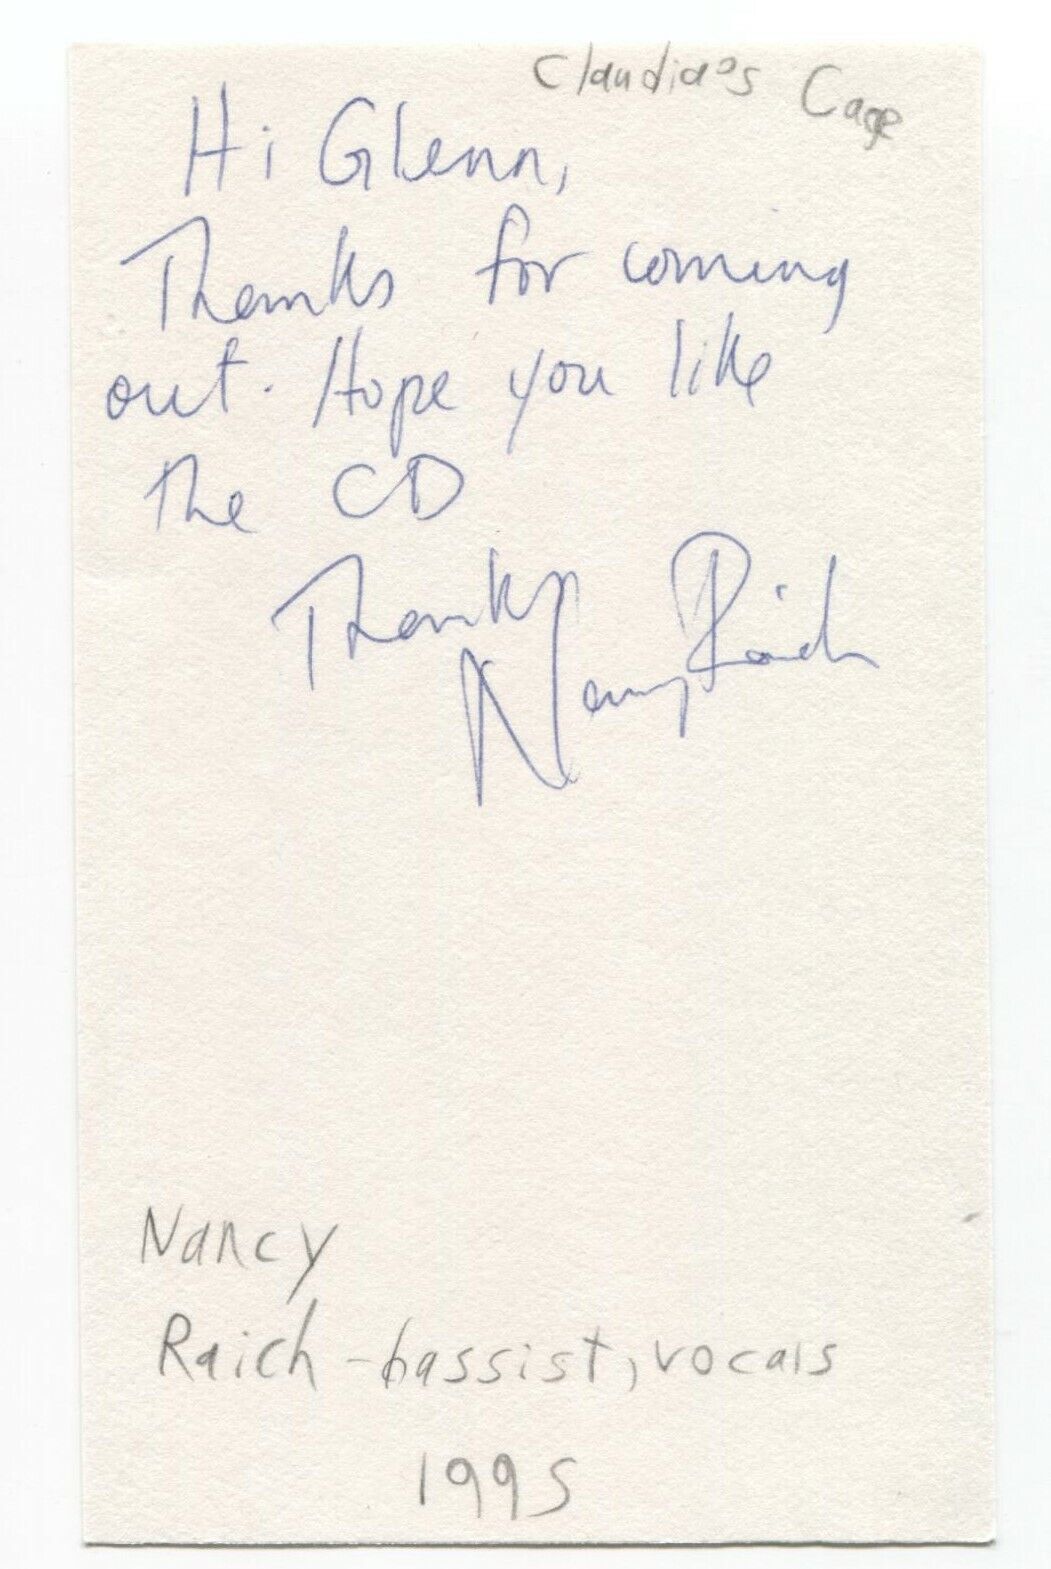 Claudia's Cage
Hi Glenn,
Thanks for coming
out. Hope you like
the CD
Thanks
Nancy Raich
Nancy
Raich - bassist, vocals
1995